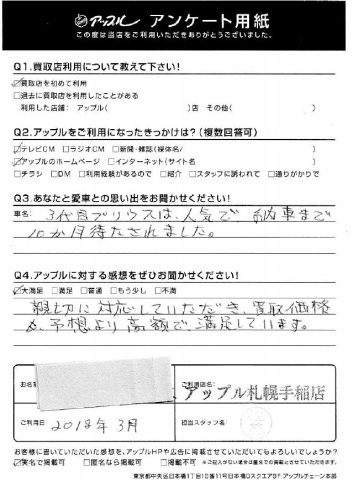 アップル アンケート用紙
この度は当店をご利用いただきありがとうございました。
Q1.買取店利用について教えて下さい!
☑買取店を初めて利用
□過去に買取店を利用したことがある
利用した店舗: アップル( )店 その他( )
Q2.アップルをご利用になったきっかけは?(複数回答可)
☑テレビCM □ラジオCM □新聞・雑誌(媒体名/ )
☑アップルのホームページ □インターネット(サイト名 )
□チラシ □DM □利用経験があるので □紹介 □スタッフに誘われて □通りがかりで
Q3.あなたと愛車との思い出をお聞かせください!
車名:3代目プリウスは、人気で 納車まで
10か月待たされました。
Q4.アップルに対する感想をぜひお聞かせください!
☑大満足 □満足 □普通 □もう少し □不満
親切に対応していただき、買取価格
も、予想より高額で、満足しています。
お名
ご利用店名:
、アップル札幌手稲店
ご利用日 2018年3月
担当スタッフ名:
お客様に書いていただいた感想を、アップルHPや広告に掲載させていただいてもよろしいでしょうか?
☑実名で掲載可 □匿名なら掲載可 □掲載不可 ※ご記入がない場合は匿名での掲載とさせていただきます。
東京都中央区日本橋1丁目18番11号日本橋DスクエアBF アップルチェーン本部